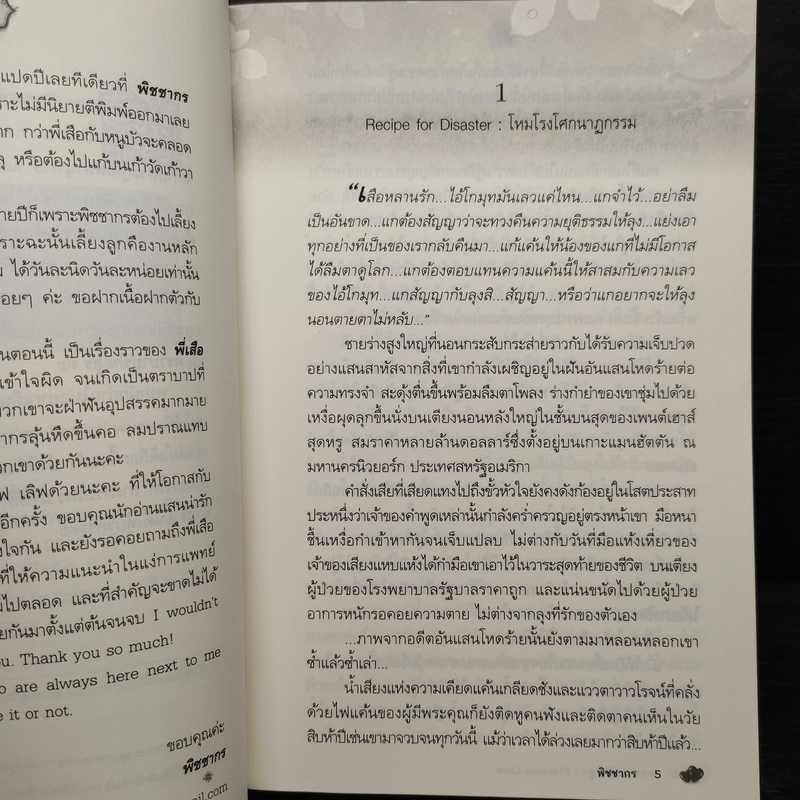 แปดปีเลยทีเดียวที่ พิชชากร
ราะไม่มีนิยายตีพิมพ์ออกมาเลย
าก กว่าพี่เสือกับหนูบัวจะคลอด
ุ หรือต้องไปแก้บนเก้าวัดเก้าวา
ายปีก็เพราะพิชชากรต้องไปเลี้ยง
ราะฉะนั้นเลี้ยงลูกคืองานหลัก
ม ได้วันละนิดวันละหน่อยเท่านั้น
อยๆ ค่ะ ขอฝากเนื้อฝากตัวกับ
นตอนนี้ เป็นเรื่องราวของ พี่เสือ
เข้าใจผิด จนเกิดเป็นตราบาปที่
พวกเขาจะฝ่าฟันอุปสรรคมากมาย
ากรลุ้นหืดขึ้นคอ ลมปราณแทบ
วกเขาด้วยกันนะคะ
ฟ เลิฟด้วยนะคะ ที่ให้โอกาสกับ
อีกครั้ง ขอบคุณนักอ่านแสนน่ารัก
งใจกัน และยังรอคอยถามถึงพี่เสือ
ที่ให้ความแนะนำในแง่การแพทย์
มไปตลอด และที่สำคัญจะขาดไม่ได้
ยกันมาตั้งแต่ต้นจนจบ I wouldn't
ou. Thank you so much!
o are always here next to me
e it or not.
ขอบคุณค่ะ
พิชชากร
ail.com
1
Recipe for Disaster : โหมโรงโศกนาฏกรรม
“เสือหลานรัก...ไอ้โกมุทมันเลวแค่ไหน...แกจำไว้...อย่าลืม
เป็นอันขาด...แกต้องสัญญาว่าจะทวงคืนความยุติธรรมให้ลุง...แย่งเอา
ทุกอย่างที่เป็นของเรากลับคืนมา...แก้แค้นให้น้องของแกที่ไม่มีโอกาส
ได้ลืมตาดูโลก...แกต้องตอบแทนความแค้นนี้ให้สาสมกับความเลว
ของไอ้โกมุท...แกสัญญากับลุงสิ...สัญญา...หรือว่าแกอยากจะให้ลุง
นอนตายตาไม่หลับ...”
ชายร่างสูงใหญ่ที่นอนกระสับกระส่ายราวกับได้รับความเจ็บปวด
อย่างแสนสาหัสจากสิ่งที่เขากำลังเผชิญอยู่ในฝันอันแสนโหดร้ายต่อ
ความทรงจำ สะดุ้งตื่นขึ้นพร้อมลืมตาโพลง ร่างกำยำของเขาชุ่มไปด้วย
เหงื่อผุดลุกขึ้นนั่งบนเตียงนอนหลังใหญ่ในชั้นบนสุดของเพนต์เฮาส์
สุดหรู สมราคาหลายล้านดอลลาร์ซึ่งตั้งอยู่บนเกาะแมนฮัตตัน ณ
มหานครนิวยอร์ก ประเทศสหรัฐอเมริกา
คำสั่งเสียที่เสียดแทงไปถึงขั้วหัวใจยังคงดังก้องอยู่ในโสตประสาท
ประหนึ่งว่าเจ้าของคำพูดเหล่านั้นกำลังคร่ำครวญอยู่ตรงหน้าเขา มือหนา
ชื้นเหงื่อกำเข้าหากันจนเจ็บแปลบ ไม่ต่างกับวันที่มือแห้งเหี่ยวของ
เจ้าของเสียงแหบแห้งได้กำมือเขาเอาไว้ในวาระสุดท้ายของชีวิต บนเตียง
ผู้ป่วยของโรงพยาบาลรัฐบาลราคาถูก และแน่นขนัดไปด้วยผู้ป่วย
อาการหนักรอคอยความตาย ไม่ต่างจากลุงที่รักของตัวเอง
...ภาพจากอดีตอันแสนโหดร้ายนั้นยังตามมาหลอนหลอกเขา
ซ้ำแล้วซ้ำเล่า...
น้ำเสียงแห่งความเคียดแค้นเกลียดชังและแววตาวาวโรจน์ที่คลั่ง
ด้วยไฟแค้นของผู้มีพระคุณก็ยังติดหูคนฟังและติดตาคนเห็นในวัย
สิบห้าปีเช่นเขามาจวบจนทุกวันนี้ แม้ว่าเวลาได้ล่วงเลยมากว่าสิบห้าปีแล้ว...
พิชชากร 5